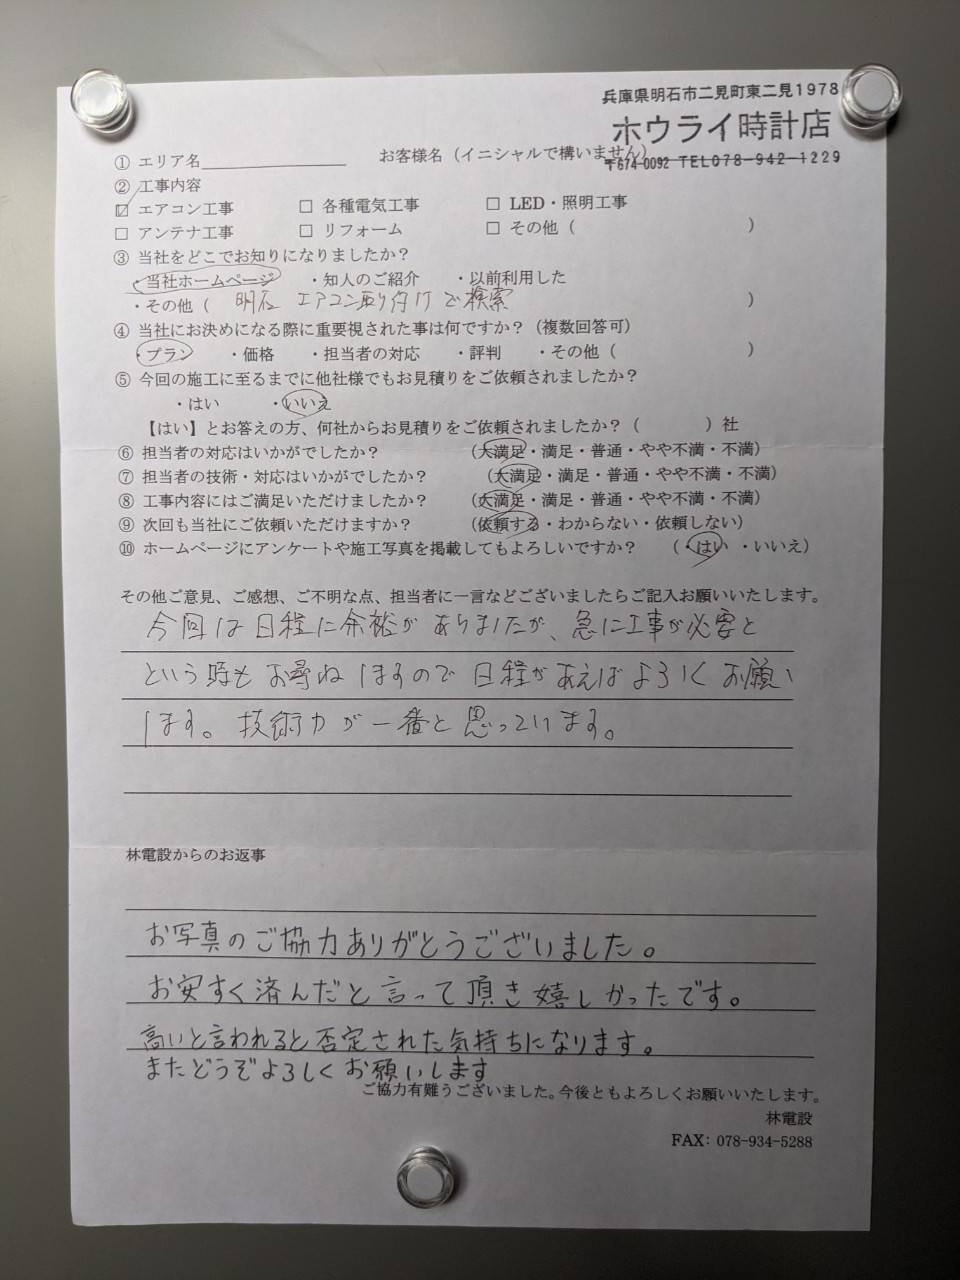 兵庫県明石市二見町東二見1978
ホウライ時計店
〒674-0092 TEL078-942-1229
① エリア名 お客様名（イニシャルで構いません）
② 工事内容
☑ エアコン工事 □ 各種電気工事 □ LED・照明工事
□ アンテナ工事 □ リフォーム □ その他（ ）
③ 当社をどこでお知りになりましたか？
・当社ホームページ ・知人のご紹介 ・以前利用した
・その他（ 明石 エアコン取り付けで検索 ）
④ 当社にお決めになる際に重要視された事は何ですか？（複数回答可）
・プラン ・価格 ・担当者の対応 ・評判 ・その他（ ）
⑤ 今回の施工に至るまでに他社様でもお見積りをご依頼されましたか？
・はい ・いいえ
【はい】とお答えの方、何社からお見積りをご依頼されましたか？（ ）社
⑥ 担当者の対応はいかがでしたか？ （大満足・満足・普通・やや不満・不満）
⑦ 担当者の技術・対応はいかがでしたか？ （大満足・満足・普通・やや不満・不満）
⑧ 工事内容にはご満足いただけましたか？ （大満足・満足・普通・やや不満・不満）
⑨ 次回も当社にご依頼いただけますか？ （依頼する・わからない・依頼しない）
⑩ ホームページにアンケートや施工写真を掲載してもよろしいですか？ （・はい ・いいえ）
その他ご意見、ご感想、ご不明な点、担当者に一言などございましたらご記入お願いいたします。
今回は日程に余裕がありましたが、急に工事が必要と
という時もお尋ねしますので日程があえばよろしくお願い
します。技術力が一番と思っています。
林電設からのお返事
お写真のご協力ありがとうございました。
お安すく済んだと言って頂き嬉しかったです。
高いと言われると否定された気持ちになります。
またどうぞよろしくお願いします
ご協力有難うございました。今後ともよろしくお願いいたします。
林電設
FAX: 078-934-5288